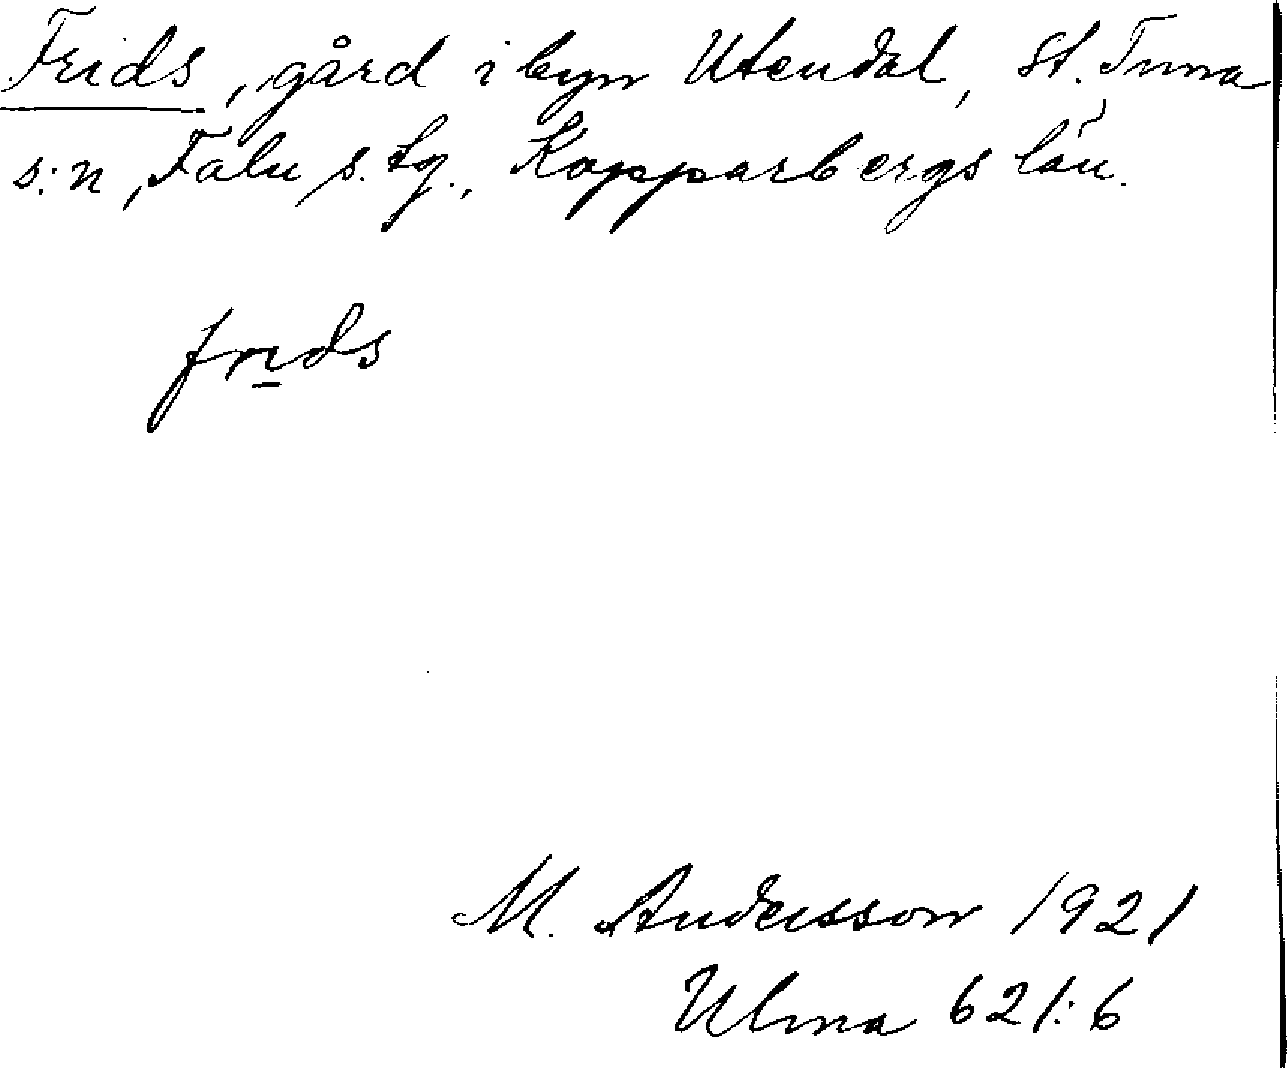 Frids, gård i byn Utendal, St. Tuna
s:n, Falu s. tg., Kopparbergs län.
frids
M. Andersson 1921
Ulma 621:6